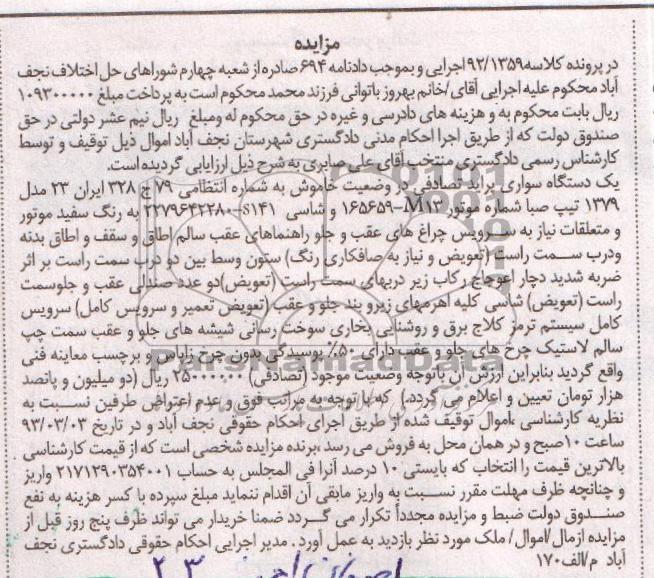 مزایده
در پرونده کلاسه ۹۲/۱۳۵۹ اجرایی و بموجب دادنامه ۶۹۴ صادره از شعبه چهارم شوراهای حل اختلاف نجف
آباد محکوم علیه اجرایی آقای/خانم بهروز باتوانی فرزند محمد محکوم است به پرداخت مبلغ ۱۰۹۳۰۰۰۰۰
ریال بابت محکوم به و هزینه های دادرسی و غیره در حق محکوم له ومبلغ ریال نیم عشر دولتی در حق
صندوق دولت که از طریق اجرا احکام مدنی دادگستری شهرستان نجف آباد اموال ذیل توقیف و توسط
کارشناس رسمی دادگستری منتخب آقای علی صابری به شرح ذیل ارزیابی گردیده است.
یک دستگاه سواری پراید تصادفی در وضعیت خاموش به شماره انتظامی ۷۹ ج ۳۲۸ ایران ۲۳ مدل
۱۳۷۹ تیپ صبا شماره موتور M۱۳-۱۶۵۶۵۹ و شاسی S۱۴۱-۲۲۷۹۶۴۲۲۸۰ به رنگ سفید موتور
و متعلقات نیاز به سرویس چراغ های عقب و جلو راهنماهای عقب سالم اطاق و سقف و اطاق بدنه
ودرب سمت راست (تعویض و نیاز به صافکاری رنگ) ستون وسط بین دو درب سمت راست بر اثر
ضربه شدید دچار اعوجاج رکاب زیر دربهای سمت راست (تعویض)دو عدد صندلی عقب و جلوسمت
راست (تعویض) شاسی کلیه اهرمهای زیرو بند جلو و عقب (تعویض تعمیر و سرویس کامل) سرویس
کامل سیستم ترمز کلاج برق و روشنایی بخاری سوخت رسانی شیشه های جلو و عقب سمت چپ
سالم لاستیک چرخ های جلو و عقب دارای ۵۰٪ پوسیدگی بدون چرخ زاپاس و برچسب معاینه فنی
واقع گردید بنابراین ارزش آن باتوجه وضعیت موجود (تصادفی) ۲۵۰۰۰۰۰۰ ریال (دو میلیون و پانصد
هزار تومان تعیین و اعلام می گردد.) که با توجه به مراتب فوق و عدم اعتراض طرفین نسبت به
نظریه کارشناسی ،اموال توقیف شده از طریق اجرای احکام حقوقی نجف آباد و در تاریخ ۹۳/۰۳/۰۳
ساعت ۱۰صبح و در همان محل به فروش می رسد ،برنده مزایده شخصی است که از قیمت کارشناسی
بالاترین قیمت را انتخاب که بایستی ۱۰ درصد آنرا فی المجلس به حساب ۲۱۷۱۲۹۰۳۵۴۰۰۱ واریز
و چنانچه ظرف مهلت مقرر نسبت به واریز مابقی آن اقدام ننماید مبلغ سپرده با کسر هزینه به نفع
صندوق دولت ضبط و مزایده مجدداً تکرار می گردد ضمنا خریدار می تواند ظرف پنج روز قبل از
مزایده ازمال/اموال/ ملک مورد نظر بازدید به عمل آورد . مدیر اجرایی احکام حقوقی دادگستری نجف
آباد م/الف۱۷۰
ParsNamadData